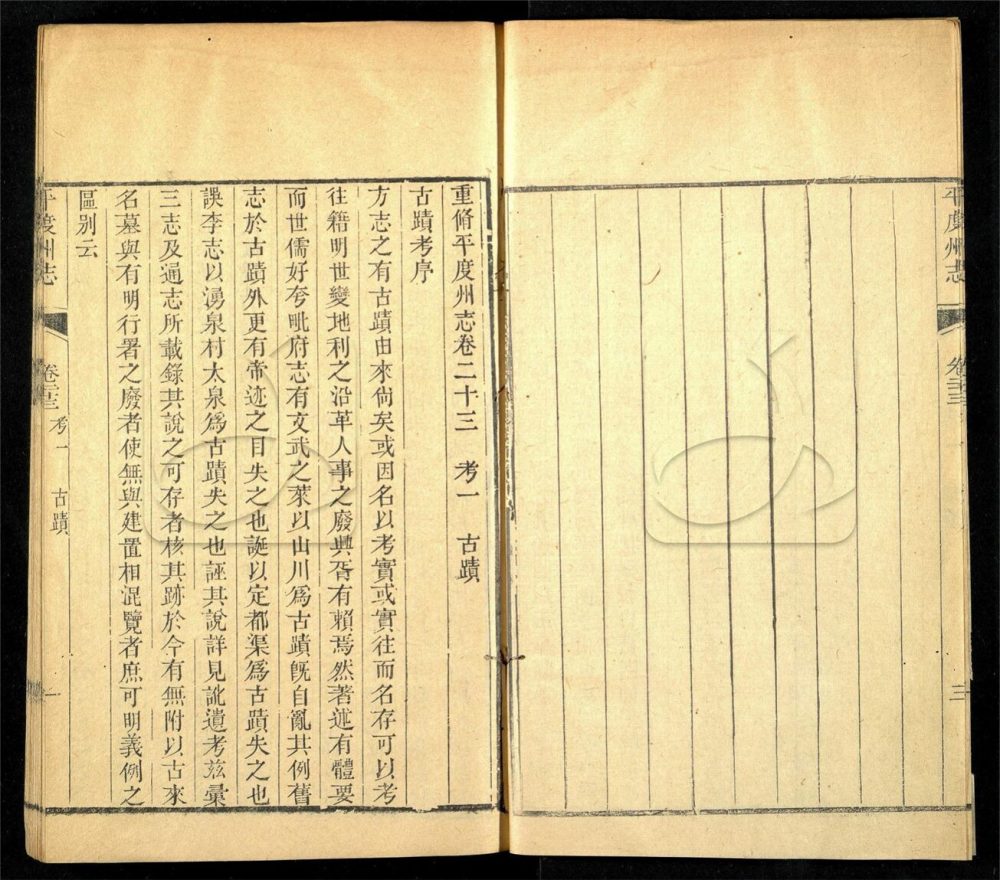 平度州志
卷二十三
三
重脩平度州志卷二十三 考一 古蹟
古蹟考序
方志之有古蹟由來尙矣或因名以考實或實往而名存可以考
往籍明世變地利之沿革人事之廢興胥有賴焉然著述有體要
而世儒好夸毗府志有文武之萊以山川爲古蹟旣自亂其例舊
志於古蹟外更有帝迹之目失之也誕以定都渠爲古蹟失之也
誤李志以湧泉村太泉爲古蹟失之也誣其說詳見訛遺考茲彙
三志及通志所載錄其說之可存者核其跡於今有無附以古來
名墓與有明行署之廢者使無與建置相混覽者庶可明義例之
區別云
平度州志
卷二十三 考一 古蹟
一